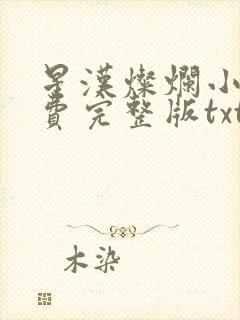 星漢燦爛小
費完整版txt
木染